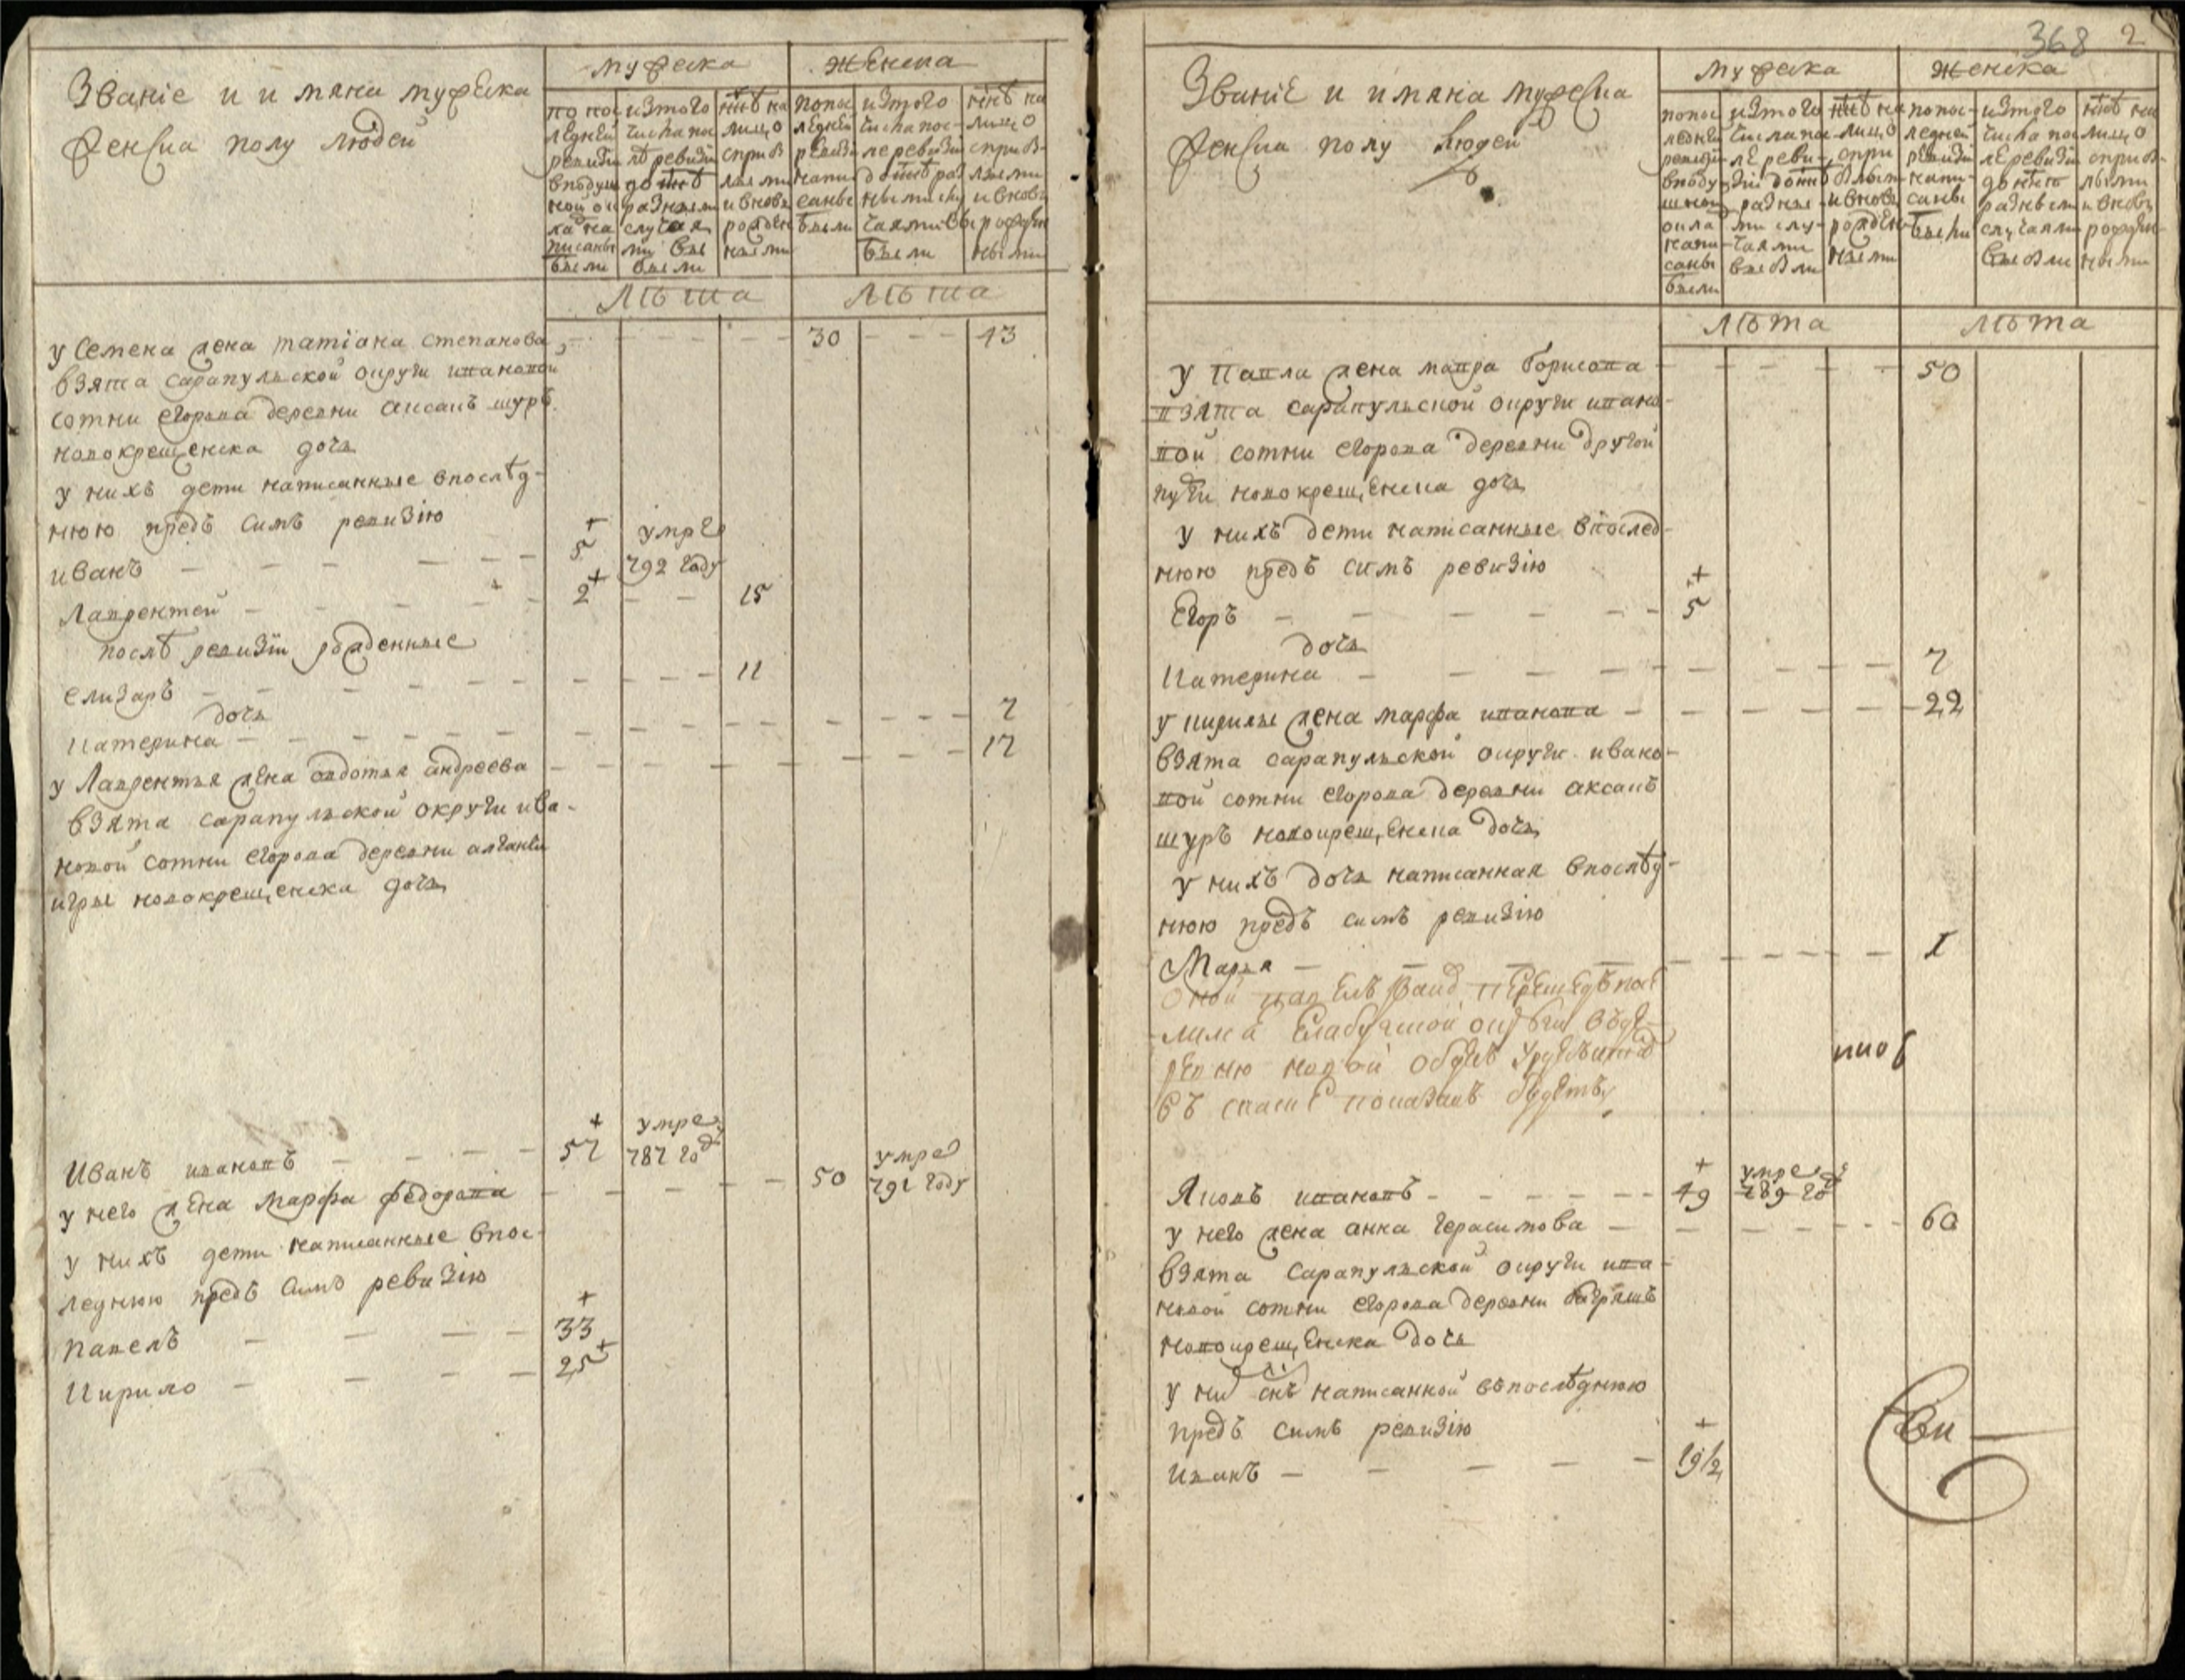 Званіе и имяна мужеска
женска полу людей
мужеска
женска
по пос
ледней
ревизіи
вподуш
ной ок
лад на
писаны
были
изтого
числа пос
лѣ ревизіи
до ннѣ
разными
случая
ми вы
были
ннѣ на
лицо
сприб
лыми
и вновь
рожден
ными
попос
ледней
ревизіи
напи
саны
были
изтого
числа пос-
ле ревизіи
до ннѣ раз
ными слу
чаями вы
были
ннѣ на
лицо
сприб-
лыми
и вновь
рожден
ными
лѣта
лѣта
у Семена жена татіана степанова - - - - - 30 - - - 43
взята сарапульской округи ивановой
сотни егорова деревни аксакъ шуръ
новокрещенска дочь
у нихъ дети написанные впослѣд-
нюю предъ симъ ревизію
иванъ - - - - - - 5 + умре
792 году
Лаврентей - - - - - 2 + - - 15
послѣ ревизіи рожденные
елизаръ - - - - - - - - - 11
дочь
Катерина - - - - - - - - - - - 7
у Лаврентья жена авдотья андреева - - - - - - - - 17
взята сарапульской округи ива-
новой сотни егорова деревни
игры новокрещенска дочь
Иванъ ивановъ - - - - 57 + умре
787 год
у него жена марфа федорова - - - - - 50 умре
791 году
у нихъ дети написанные впос-
леднюю предъ симъ ревизію
павелъ - - - - 33 +
Кирило - - - - 25 +
368 2
Званіе и имяна мужеска
женска полу людей
мужеска
женска
попос
ледней
ревизіи
вподу
шной
окла
напи
саны
были
изтого
числа пос-
ле реви-
зіи до ннѣ
разны-
ми слу-
чаями
выбыли
ннѣ на
лицо
спри
былыми
и вновь
рожден-
ными
попос-
ледней
ревизіи
напи-
саны
были
изтого
числа пос
ле ревизіи
до ннѣ
разными
случаями
выбыли
ннѣ на
лицо
сприб-
лыми
и вновь
рожден-
ными
лѣта
лѣта
у Павла жена мавра борисова - - - - 50
взята сарапульской округи ивано-
вой сотни егорова деревни другой
пужи новокрещенска дочь
у нихъ дети написанные впослед-
нюю предъ симъ ревизію
Егоръ - - - - - - 5 +
дочь
Катерина - - - - - - - - 7
у кирилы жена марфа иванова - - - - - 22
взята сарапульской округи ивано-
вой сотни егорова деревни аксакъ
шуръ новокрещенска дочь
у нихъ дочь написанная впослѣд-
нюю предъ симъ ревизію
Марья - - - - - - - - 1
оной павелъ
Елабужской округи въ де-
ревню новой
въ показанъ будетъ
Яковъ ивановъ - - - - - - 49 + умре
789 год
у него жена анна герасимова - - - - - - 60
взята сарапульской округи ива-
новой сотни егорова деревни багрышъ
новокрещенска дочь
у них снъ написанной въпослѣднюю
предъ симъ ревизію
Иванъ - - - - - 19 1/2 +